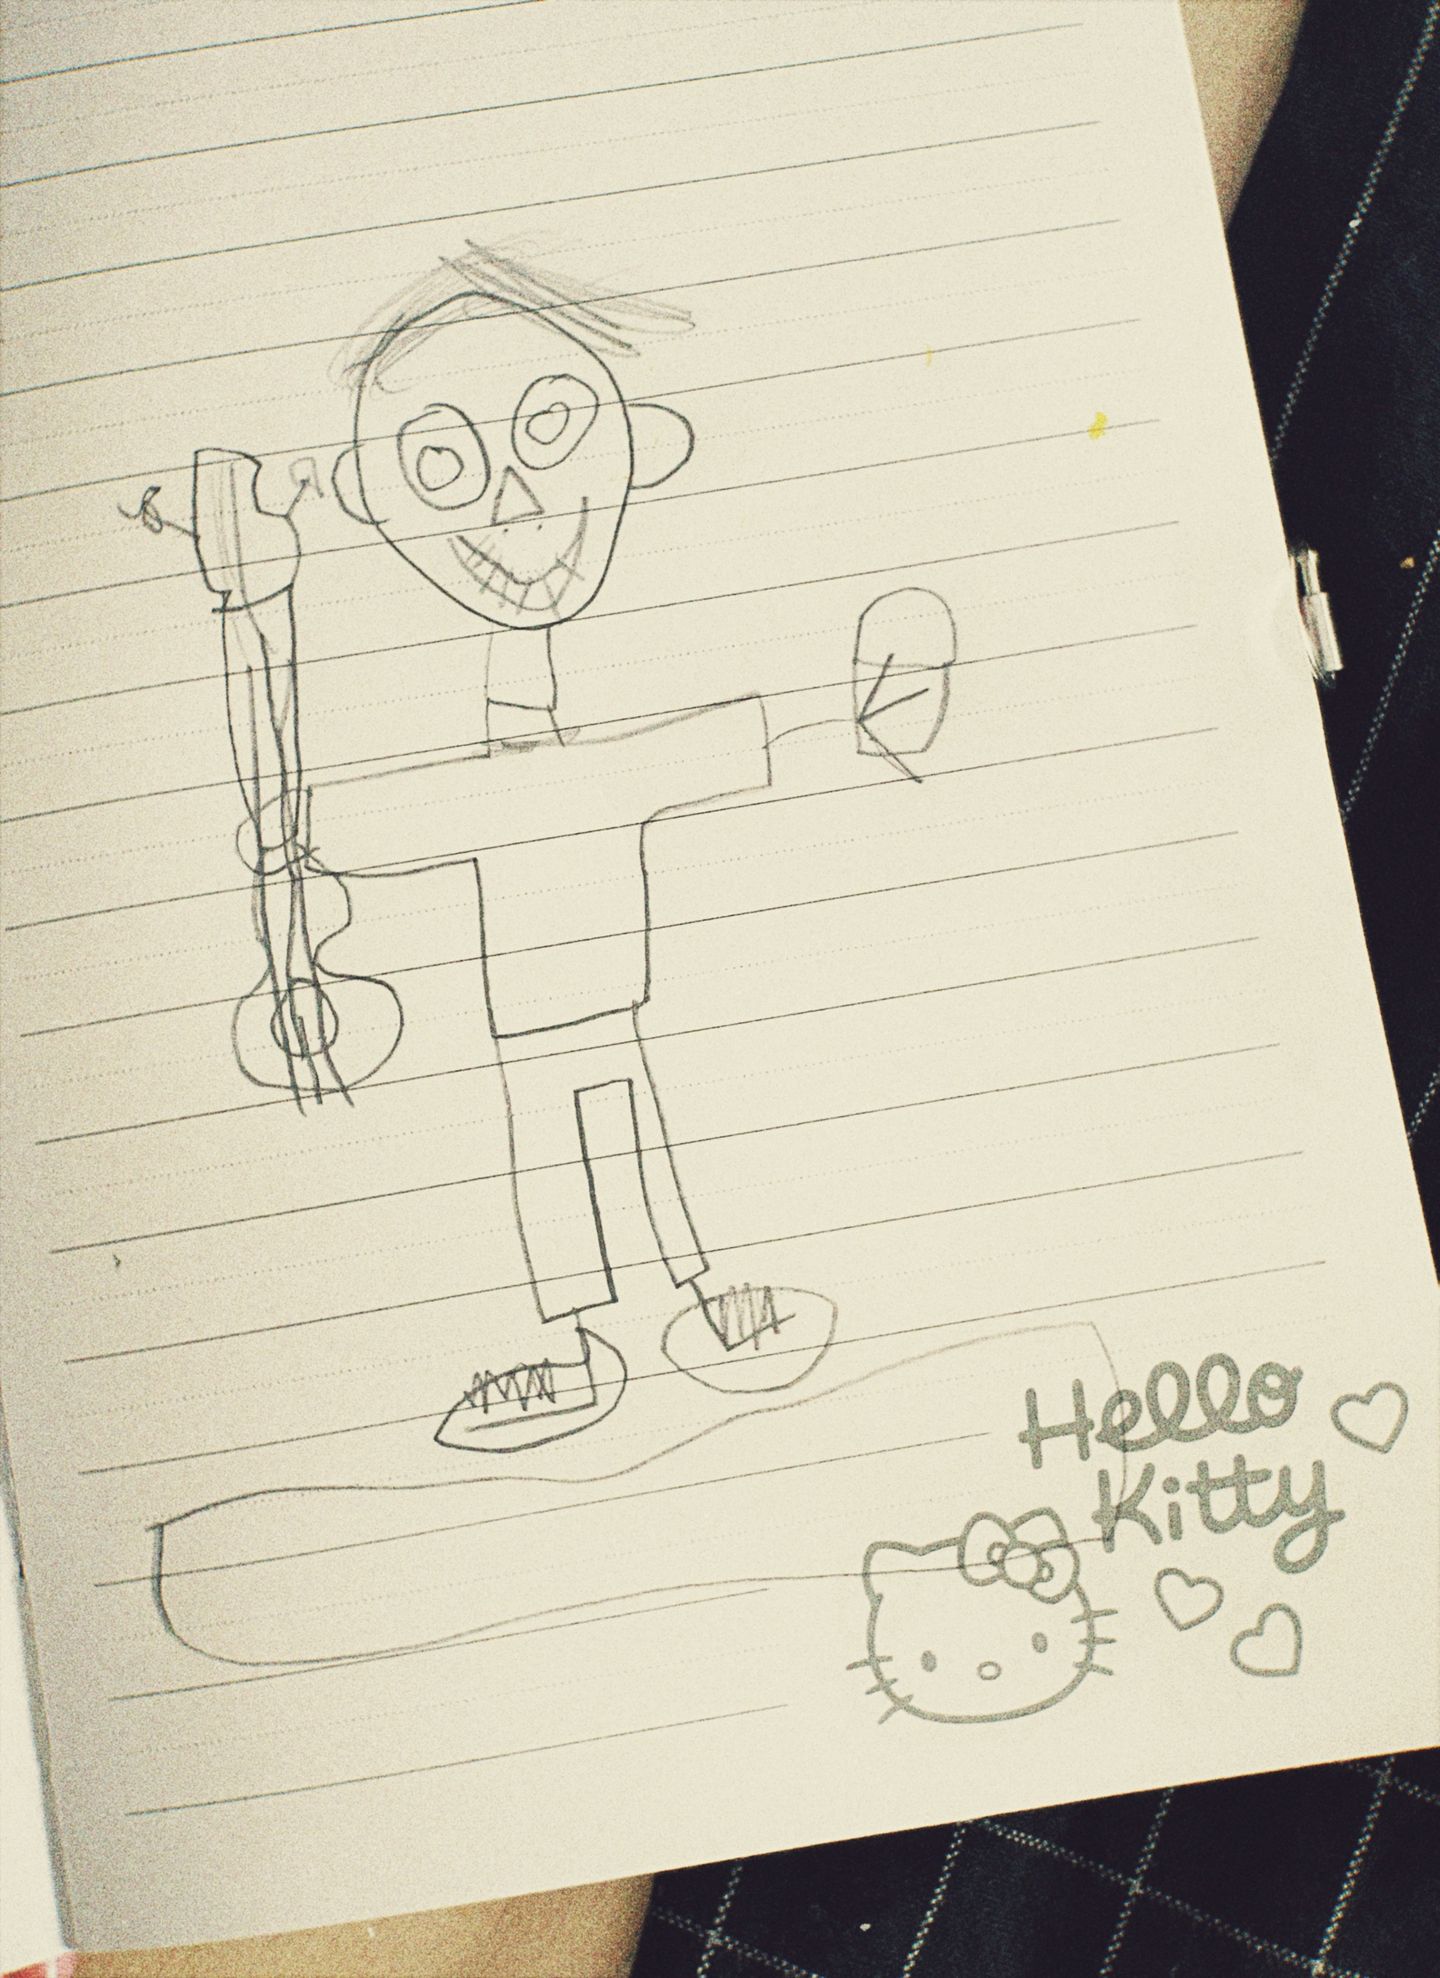 Hello
Kitty